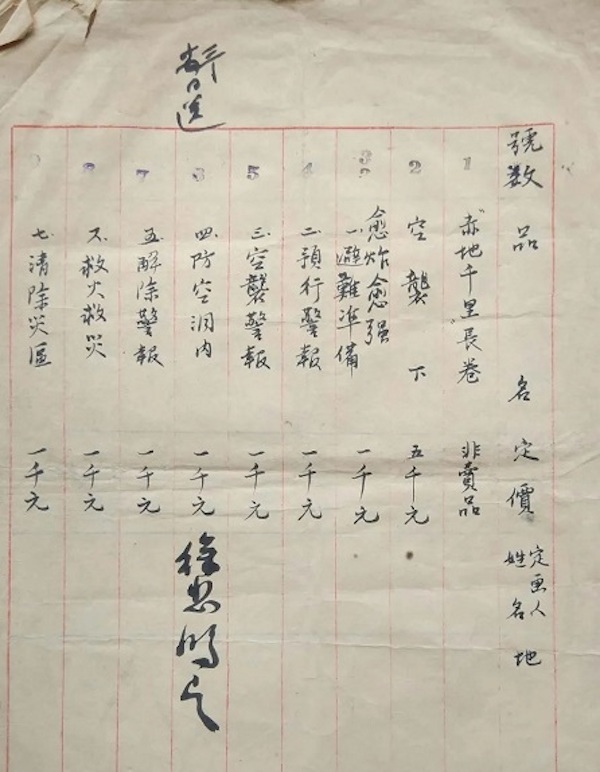 號数 品 名 定價 定画人
姓名 地
1 赤地千里長卷 非賣品
2 空襲下 五千元
3 愈炸愈强
一.避難準備 一千元
4 二.預行警報 一千元
5 三.空襲警報 一千元
6 四.防空洞内 一千元
7 五.解除警報 一千元
8 六.救火救災 一千元
七.清除災區 一千元